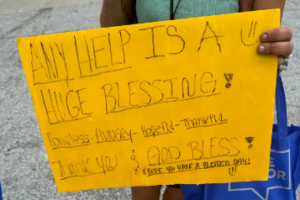 ANY HELP IS A
HUGE BLESSING!
HOMELESS-HUNGRY-HOPEFUL-THANKFUL
THANK YOU! GOD BLESS!
HOPE YOU HAVE A BLESSED DAY!